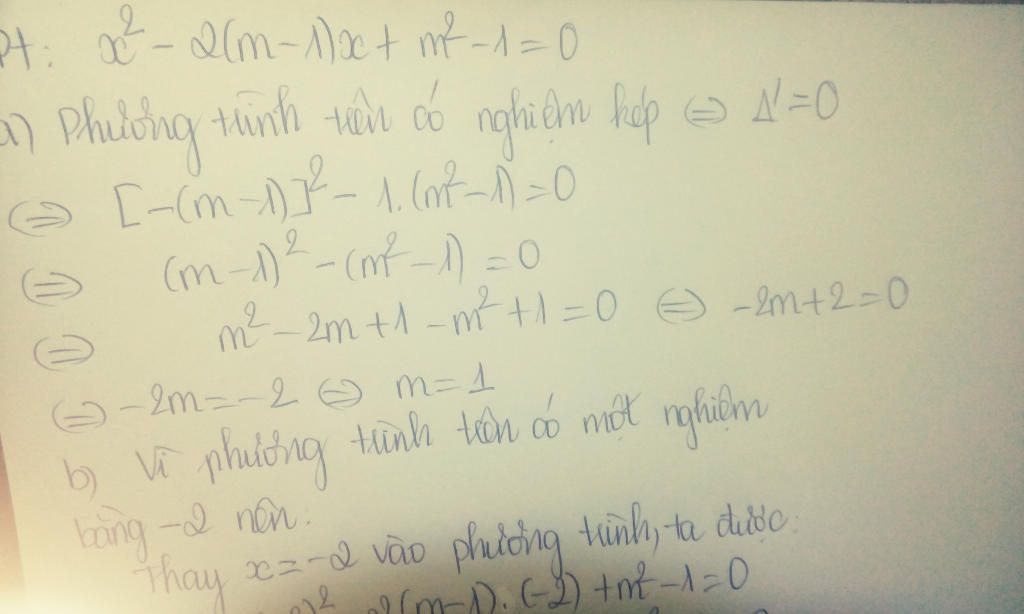 Pt: x² - 2(m-1)x + m² - 1 = 0
a) Phương trình trên có nghiệm kép ⇔ Δ' = 0
⇔ [-(m-1)]² - 1.(m²-1) = 0
⇔ (m-1)² - (m²-1) = 0
⇔ m² - 2m + 1 - m² + 1 = 0 ⇔ -2m + 2 = 0
⇔ -2m = -2 ⇔ m = 1
b) Vì phương trình trên có một nghiệm
bằng -2 nên:
Thay x = -2 vào phương trình, ta được:
2(m-1).(-2) + m² - 1 = 0